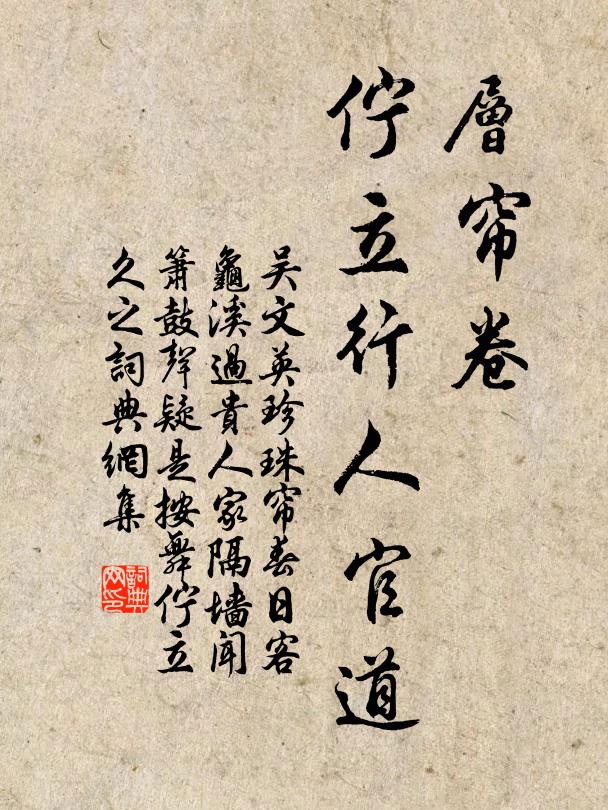 層帘卷
佇立行人官道
吴文英珍珠帘春日客
龜溪過貴人家隔墙闻
簫鼓聲疑是按舞佇立
久之詞典網集
詞典
网印